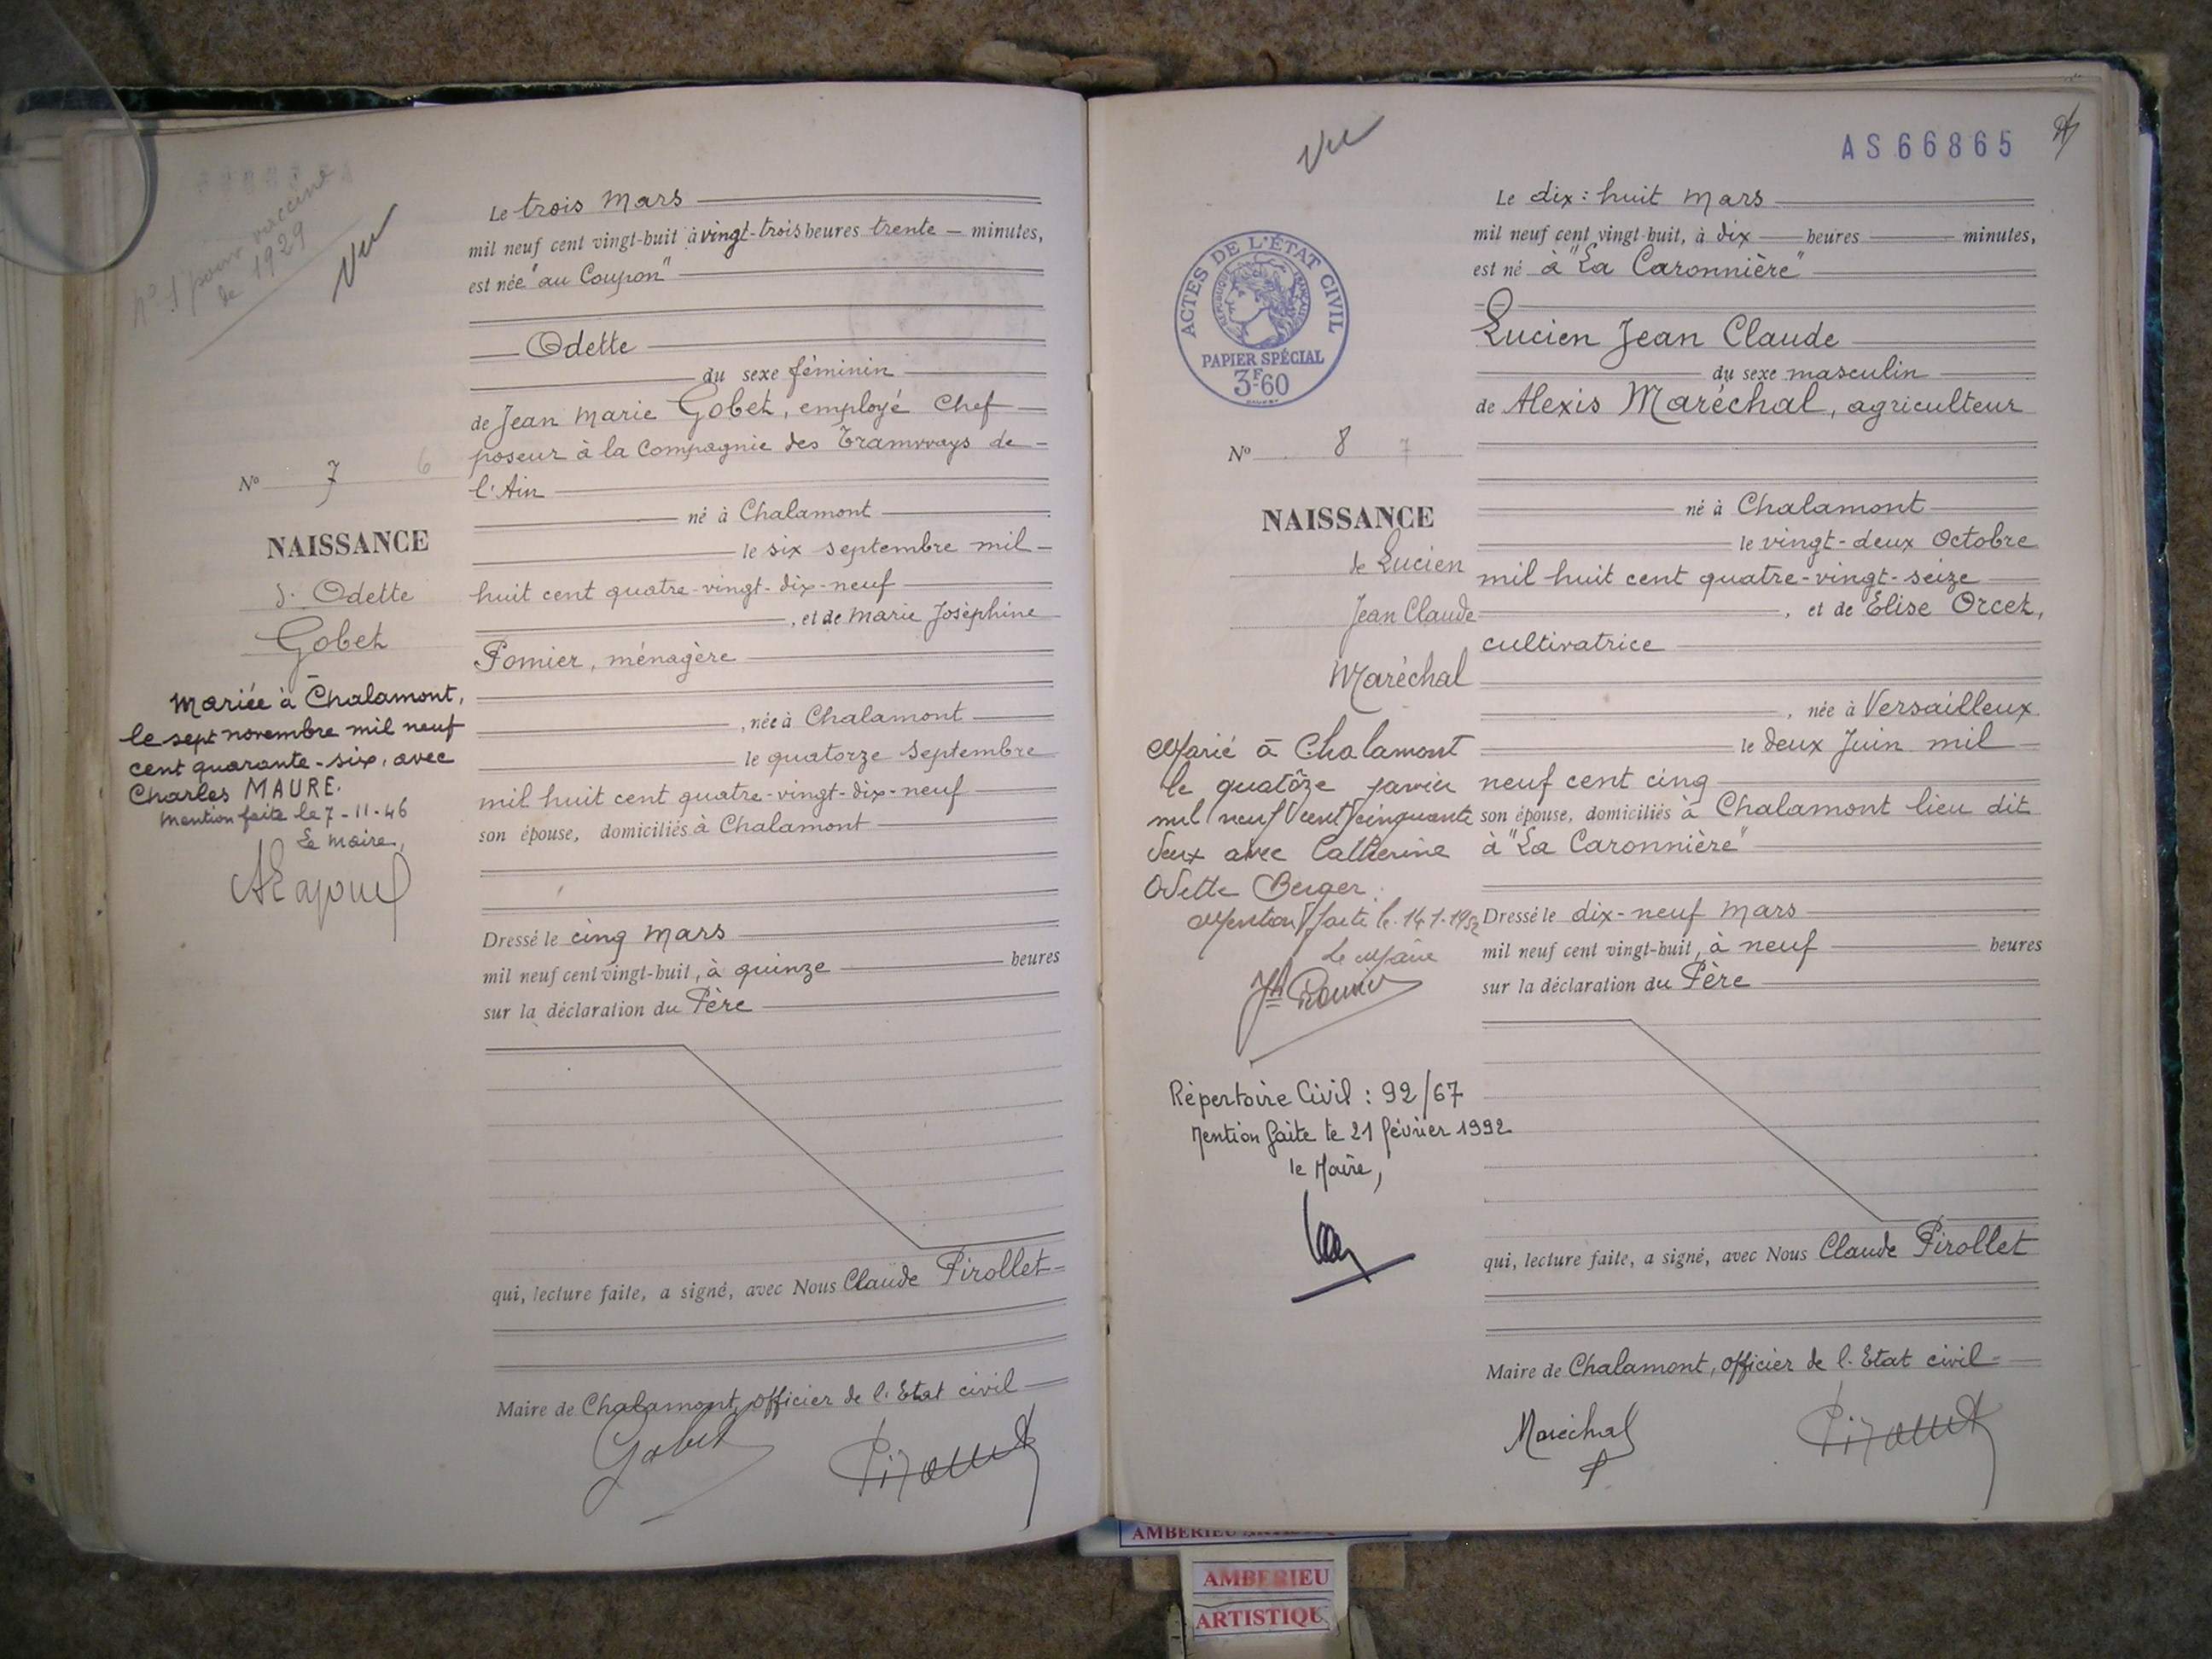 N° 1 pour vaccine
de 1929
Vu
Le trois Mars
mil neuf cent vingt-huit à vingt-trois heures trente — minutes,
est née "au Coupon"
Odette
du sexe féminin
de Jean Marie Gobet, employé Chef
poseur à la Compagnie des Tramways de
l'Ain
né à Chalamont
le six septembre mil
huit cent quatre-vingt-dix-neuf
, et de Marie Josèphine
Pomier, ménagère
, née à Chalamont
le quatorze Septembre
mil huit cent quatre-vingt-dix-neuf
son épouse, domiciliés à Chalamont
Dressé le cinq Mars
mil neuf cent vingt-huit, à quinze heures
sur la déclaration du Père
qui, lecture faite, a signé, avec Nous Claude Pirollet
Maire de Chalamont, officier de l'Etat civil
Gobet
N° 7 6
NAISSANCE
d'Odette
Gobet
Mariée à Chalamont,
le sept novembre mil neuf
cent quarante-six, avec
Charles MAURE.
Mention faite le 7-11-46
Le Maire,
Vu
AS66865
ACTES DE L'ÉTAT CIVIL
RÉPUBLIQUE FRANÇAISE
PAPIER SPÉCIAL
3F60
Le dix:huit Mars
mil neuf cent vingt-huit, à dix — heures — minutes,
est né à "La Caronnière"
Lucien Jean Claude
du sexe masculin
de Alexis Maréchal, agriculteur
né à Chalamont
le vingt-deux Octobre
mil huit cent quatre-vingt-seize
, et de Elise Orcet,
cultivatrice
, née à Versailleux
le deux Juin mil
neuf cent cinq
son épouse, domiciliés à Chalamont lieu dit
à "La Caronnière"
Dressé le dix-neuf Mars
mil neuf cent vingt-huit, à neuf heures
sur la déclaration du Père
qui, lecture faite, a signé, avec Nous Claude Pirollet
Maire de Chalamont, officier de l'Etat civil
Maréchal
N° 8 7
NAISSANCE
de Lucien
Jean Claude
Maréchal
Marié à Chalamont
le quatorze janvier
mil neuf cent cinquante
deux avec Catherine
Odette Berger.
Mention faite le 14-1-1952
Le Maire
Répertoire Civil : 92/67
Mention faite le 21 février 1992
le Maire,
AMBERIEU
AMBERIEU
ARTISTIQU